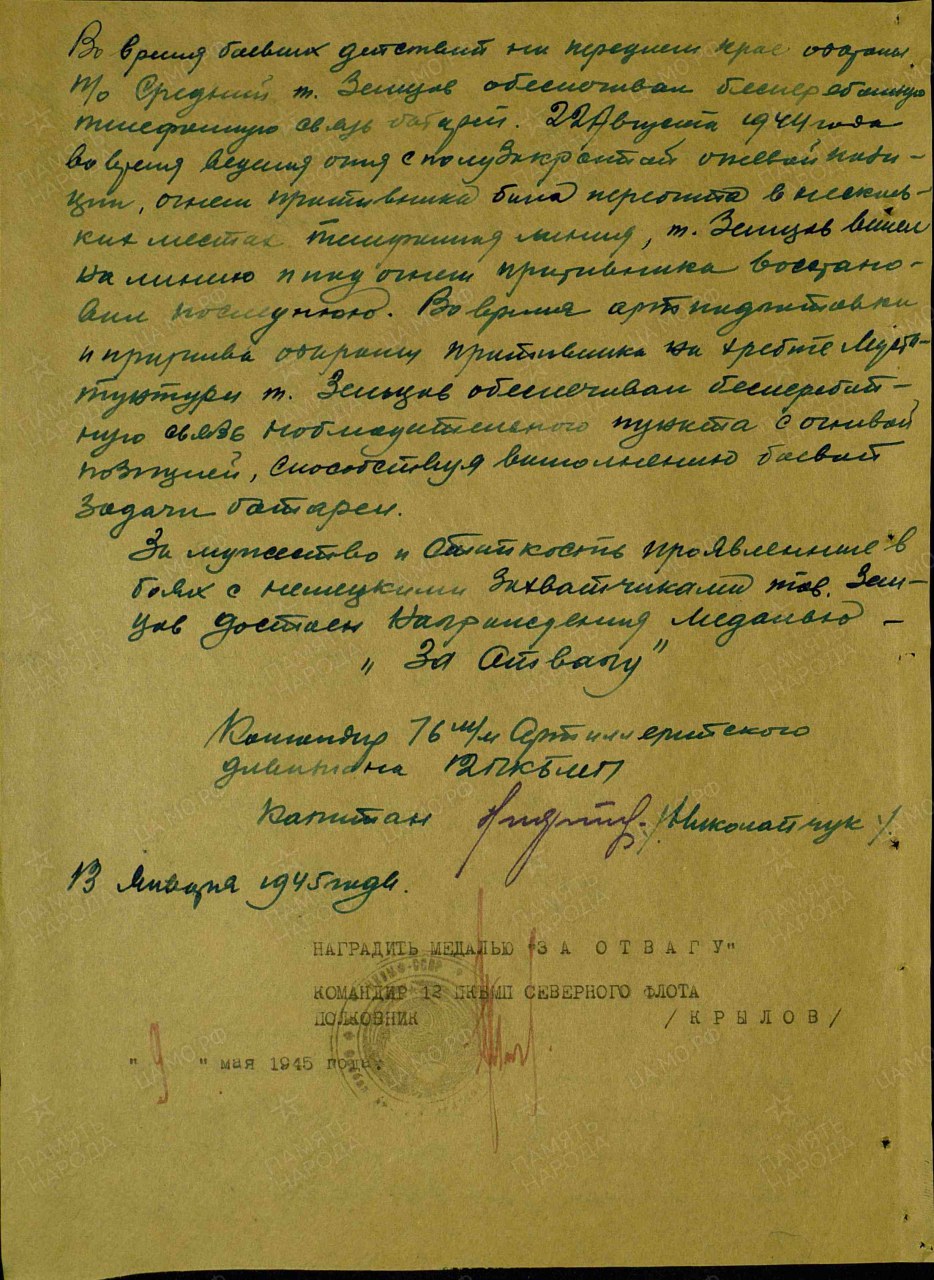 Во время боевых действий на переднем крае обороны
п/о Средний т. Земцов обеспечивал бесперебойную
телефонную связь батареи. 22 Августа 1944 года
во время ведения огня с полузакрытой огневой пози-
ции, огнем противника была перебита в несколь-
ких местах телефонная линия, т. Земцов вышел
на линию и под огнем противника восстано-
вил последнюю. Во время артподготовки
и прорыва обороны противника на хребте Муста-
тунтури т. Земцов обеспечивал бесперебой-
ную связь наблюдательного пункта с огневой
позицией, способствуя выполнению боевой
задачи батареи.
За мужество и стойкость проявленные в
боях с немецкими захватчиками тов. Зем-
цов достоен награждения медалью -
„ За Отвагу"
Командир 76 м/м Артиллерийского
дивизиона 12 ПКБМП
Капитан /Николайчук/.
13 Января 1945 года.
НАГРАДИТЬ МЕДАЛЬЮ "З А О Т В А Г У"
КОМАНДИР 12 ПКБМП СЕВЕРНОГО ФЛОТА
ПОЛКОВНИК / К Р Ы Л О В /
" 9 " мая 1945 года.
ПАМЯТЬ НАРОДА
ЦАМО.РФ